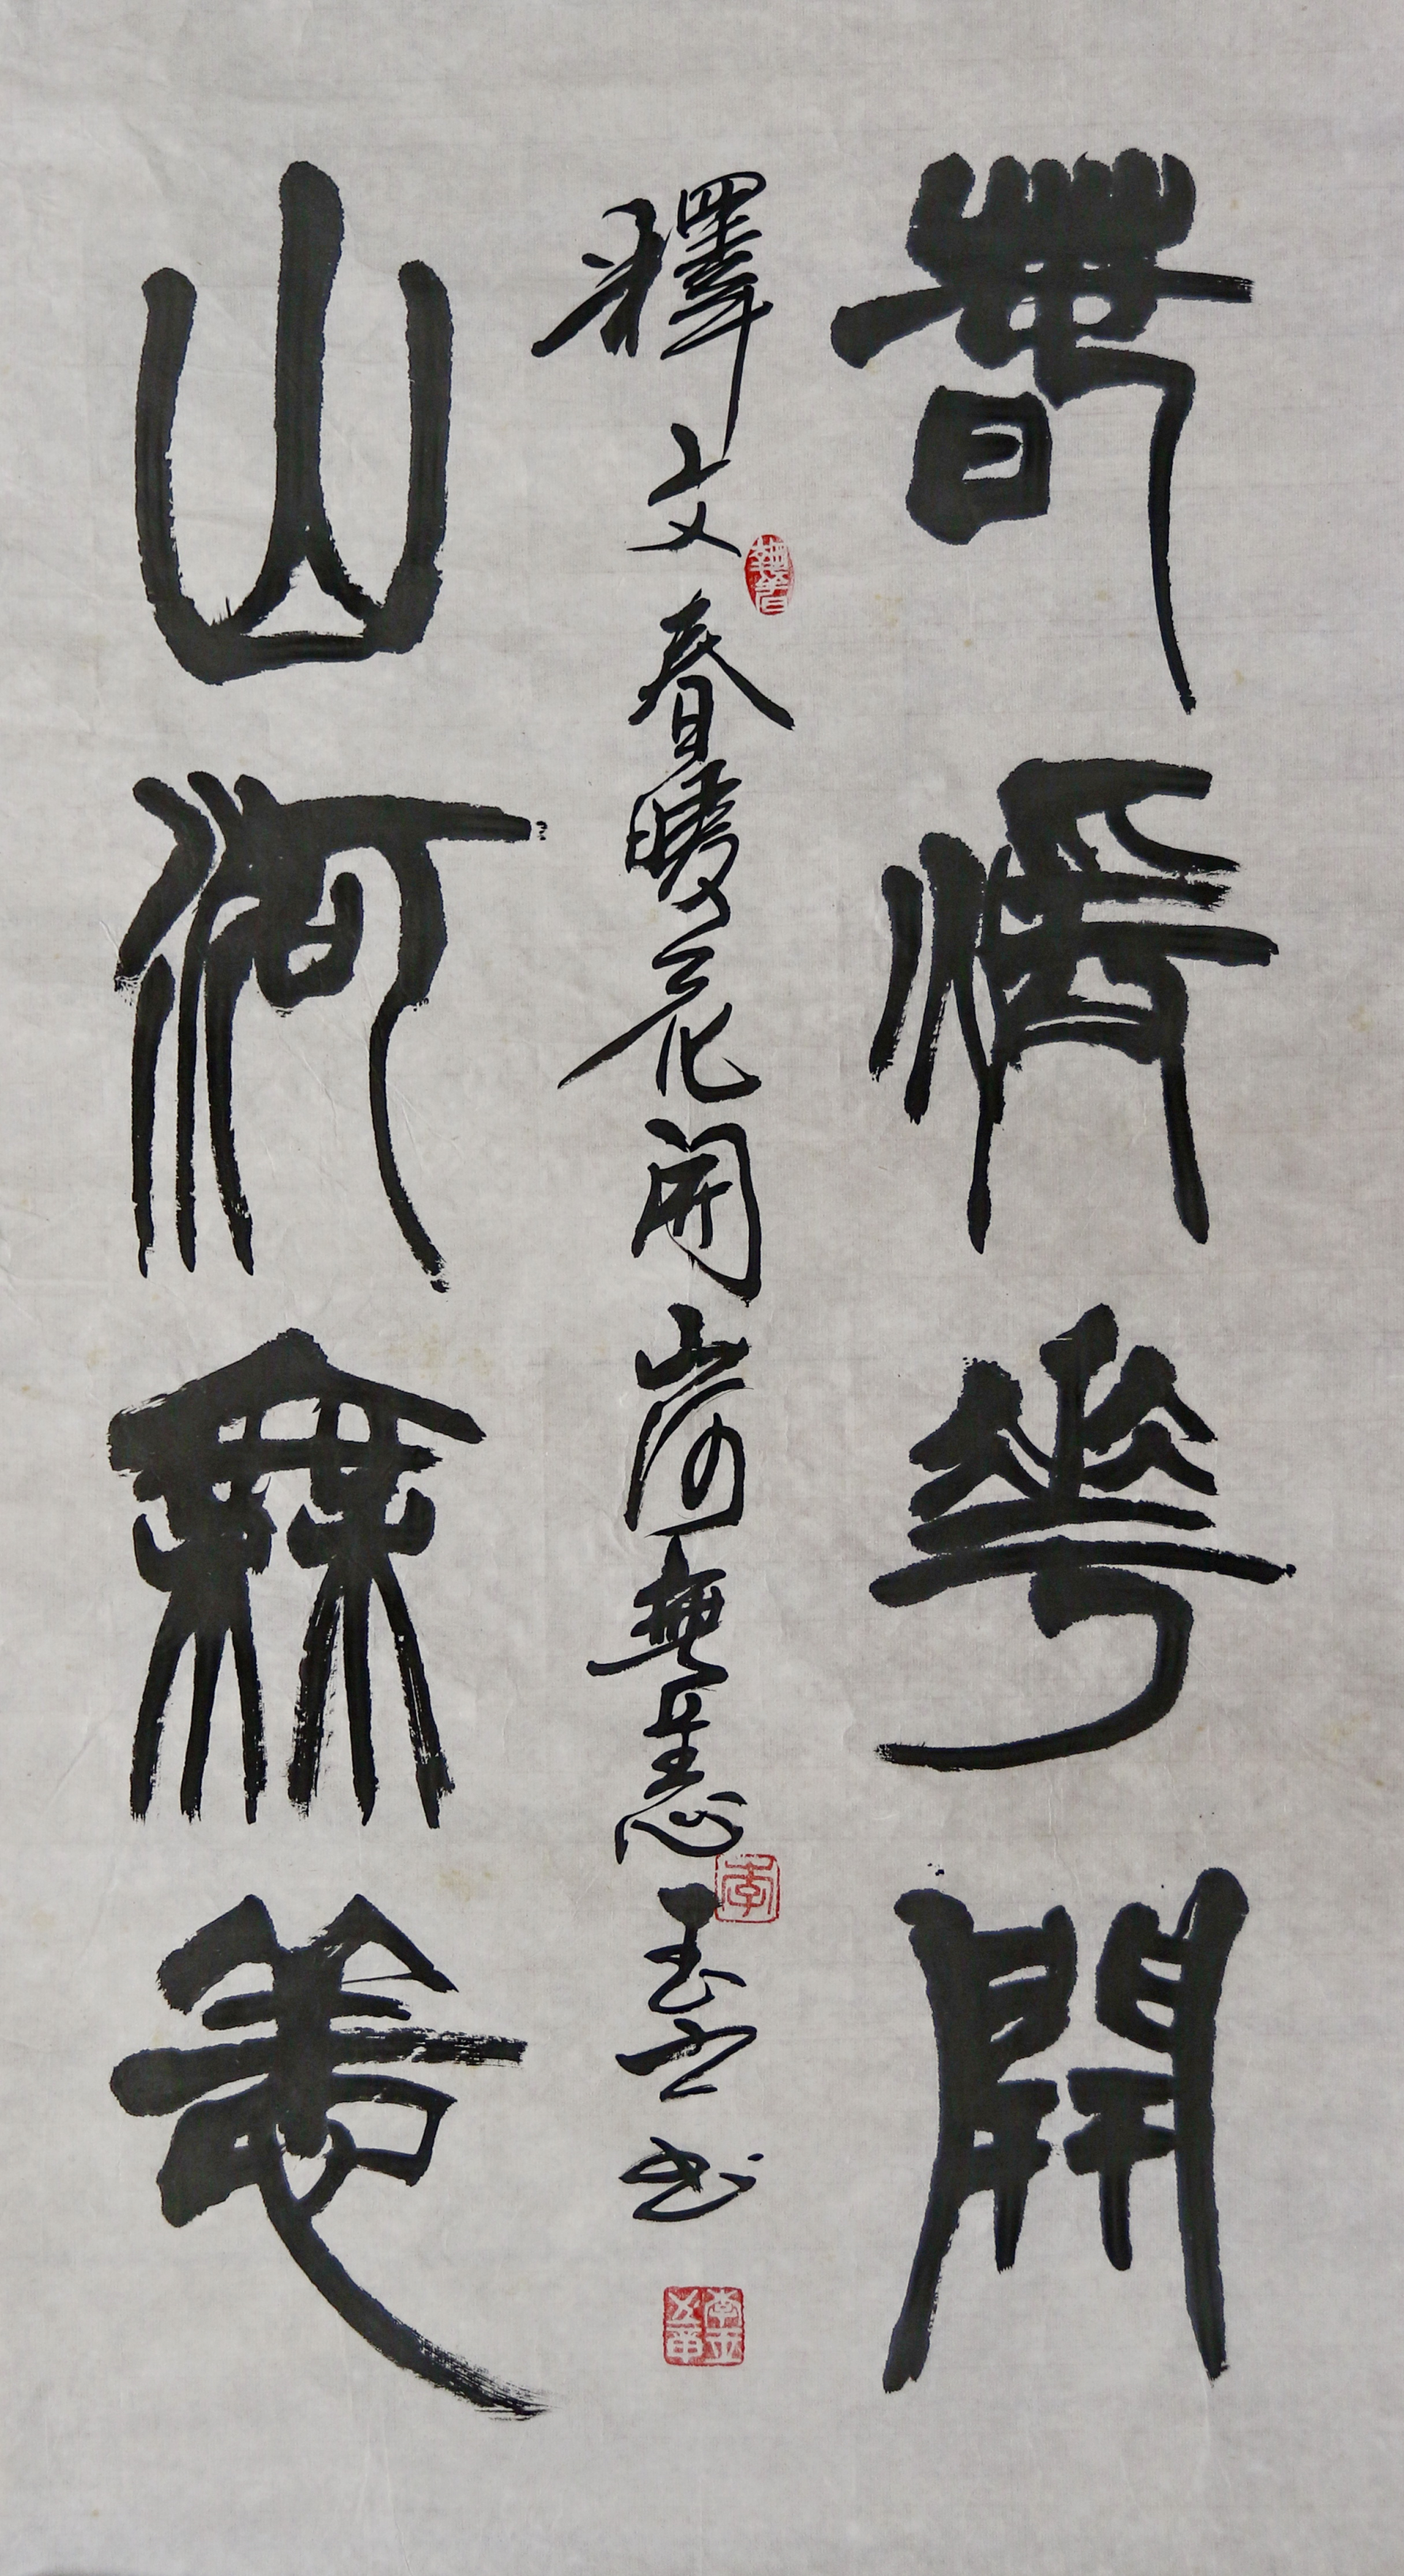 春煖華開
釋文春暖花開山河無恙 玉 书
山河無恙
李